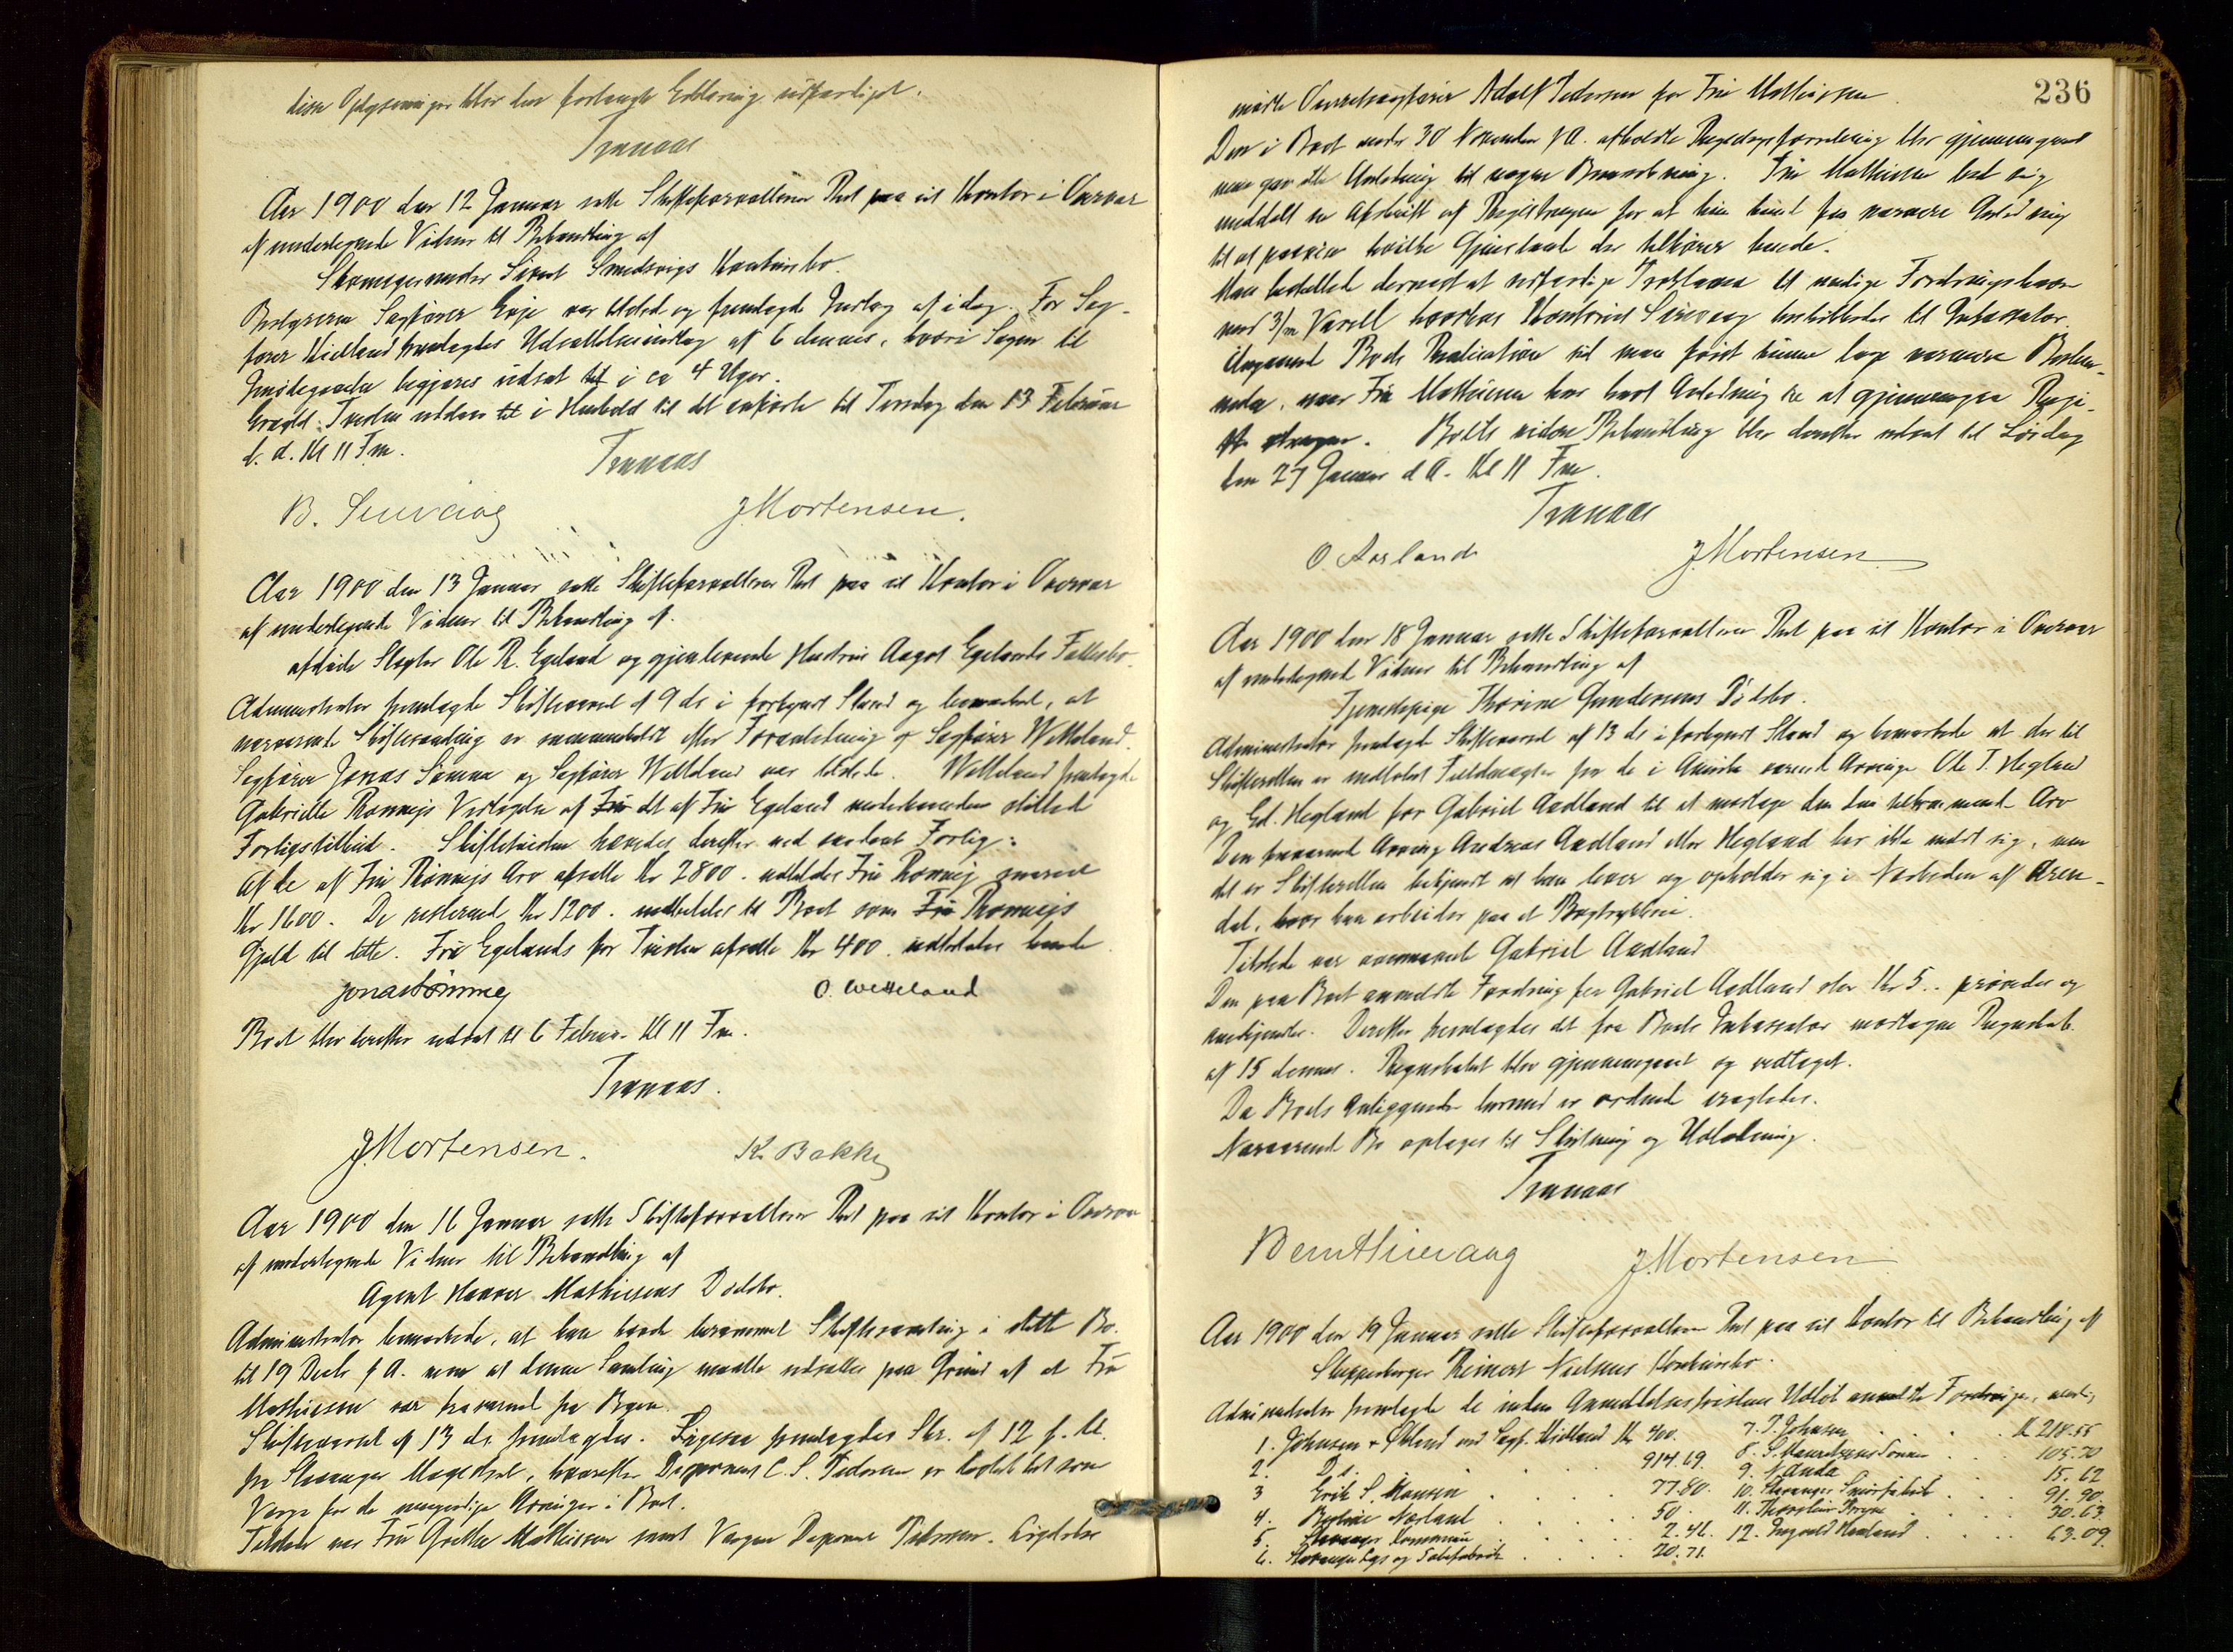 disse Oplysninger blev den forlangte Erklæring udfærdiget.
Tranaas
Aar 1900 den 12 Januar satte Skifteforvalteren Ret paa sit Kontor i Overvær
af undertegnede Vidner til Behandling af
Skomagermester Sivert Smedsvigs Konkursbo.
Bestyreren Sagfører Eije var tilsted og fremlagde Indlæg af idag. For Sag-
fører Kielland fremlagdes Udsættelsesindlæg af 6 dennes, hvori Sagen til
Imødegaaelse begjæres udsat i ca 4 Uger.
Eragtet: Tvisten uddsættes i Henhold til det anførte til Tirsdag den 13 Februar
d. A. Kl 11 Fm.
Tranaas
B. Sirevaag J Mortensen.
Aar 1900 den 13 Januar satte Skifteforvalteren Ret paa sit Kontor i Overvær
af undertegnede Vidner til Behandling af
afdøde Slagter Ole R. Egeland og gjenlevende Hustru Aagot Egelands Fællesbo.
Administrator fremlagde Skiftevarsel af 9 ds i forkyndt Stand og bemærked, at
nærværende Skiftesamling er sammenkaldt efter Foranledning af Sagfører Wetteland.
Sagfører Jonas Sømme og Sagfører Wetteland var tilstede. Wetteland fremlagde
Gabrielle Rønnejs Vedtagelse af det af Fru Egeland vedkommende stillede
Forligstilbud. Skiftetvisten hævedes derefter ved saadant Forlig:
Af de af Fru Rønnejs Arv afsatte Kr 2800. udbetales Fru Rønnej
Kr 1600. De resterende Kr 1200. indbetales til Boet som Fru Rønnejs
Gjæld til dette. Fru Egelands for Tvisten afsatte Kr 400. udbetales hende.
Jonas Sømme O. Wetteland
Boet blev derefter udsat til 6 Februar Kl 11 Fm.
Tranaas.
J Mortensen. K. Bakke
Aar 1900 den 16 Januar satte Skifteforvalteren Ret paa sit Kontor i Overvær
af undertegnede Vidner til Behandling af
Agent Mathiesens Dødsbo.
Administrator bemærkede, at han havde berammet Skiftesamling i dette Bo
til 19 Decbr f A. men at denne Samling maatte udsættes paa Grund af at Fru
Mathiesen var fraværende fra Byen.
Skiftevarsel af 13 ds. fremlagdes. Ligesaa fremlagdes Skr. af 12 f. M.
fra Stavanger Magistrat, hvorefter Disponent C. S. Pedersen er beskikket som
Værge for de umyndige Arvinger i Boet.
Tilstede var Fru Grethe Mathiesen samt Værgen Disponent Pedersen. Ligeledes
236
mødte Overretssagfører Adolf Pedersen for Fru Mathiesen.
Den i Boet under 30 November f A. afholdte Registreringsforretning blev gjennemgaaet
men gav ikke Anledning til nogen Bemærkning. Fru Mathiesen bad sig
meddelt en Afskrift af Registreringen for at hun kunde faa nærmere Anledning
til at paavise hvilke Gjenstande der tilhører hende.
Man besluttede dernæst at udfærdige Proklama til mulige Fordringshavere
med 3/m Varsel hvorhos Kontorist Sirevaag beskikkedes til Inkassator.
Angaaende Boets Realisation vil man først kunne tage nærmere Bestem-
melse, naar Fru Mathiesen har havt Anledning til at gjennemgaa Regi-
streringen. Boets videre Behandling blev derefter udsat til Lørdag
den 27 Januar d A. Kl 11 Fm.
Tranaas
O Aarland J Mortensen
Aar 1900 den 18 Januar satte Skifteforvalteren Ret paa sit Kontor i Overvær
af undertegnede Vidner til Behandling af
Tjenestepige Thorine Gundersens Dødsbo.
Administrator fremlagde Skiftevarsel af 13 ds i forkyndt Stand og bemærkede at der til
Skifteretten er indløbet Fuldmagter fra de i Amerika værende Arvinge Ole T. Hegland
og Ed. Hegland for Gabriel Aadland til at modtage den dem tilkommende Arv
Den fraværende Arving Andreas Aadland eller Hegland har ikke meldt sig, men
det er Skifteretten bekjendt at han lever og opholder sig i Nærheden af Aren-
dal, hvor han arbeider paa et Bogtrykkeri.
Tilstede var ovennævnte Gabriel Aadland
Den paa Boet anmeldte Fordring fra Gabriel Aadland stor Kr 5.. prøvedes og
anerkjendtes. Derefter fremlagdes det fra Boets Inkassator modtagne Regnskab
af 15 dennes. Regnskabet blev gjennemgaaet og vedtaget.
Da Boets Anliggender hermed er ordnede eragtedes.
Nærværende Bo optages til Slutning og Udlodning.
Tranaas
Bernt Sirevaag J Mortensen
Aar 1900 den 19 Januar satte Skifteforvalteren Ret paa sit Kontor til Behandling af
Reinert Nielsens Konkursbo.
Administrator fremlagde de inden Anmeldelsesfristens Udløb anmeldte Fordringer, nemlig
1. Johnsen & ved Sagf. Kielland Kr 400. 7. J. Johnsen Kr 218.55
2. Ds. 914.69. 8. Sønner 105.70
3 Erik S. Hansen 77.80. 9. Anda 15.62
4. Nærland 50. 10. Stavanger 91.90.
5. Stavanger Kommune 2.46. 11. Bryne 30.63.
6. Stavanger Lys og Sæbefabrik 20.71. 12. Ingvald Haaland 63.09.